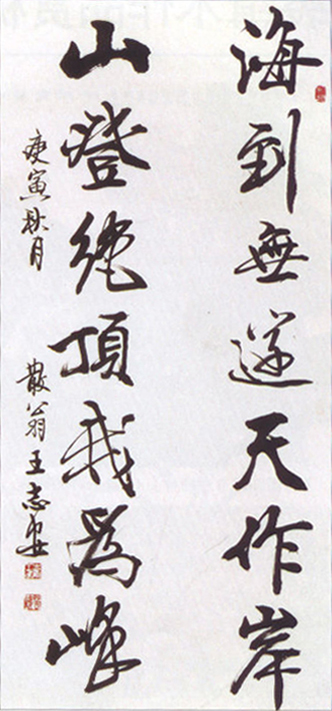 海到無邊天作岸
山登絶頂我為峰
庚寅秋月
散翁王志安